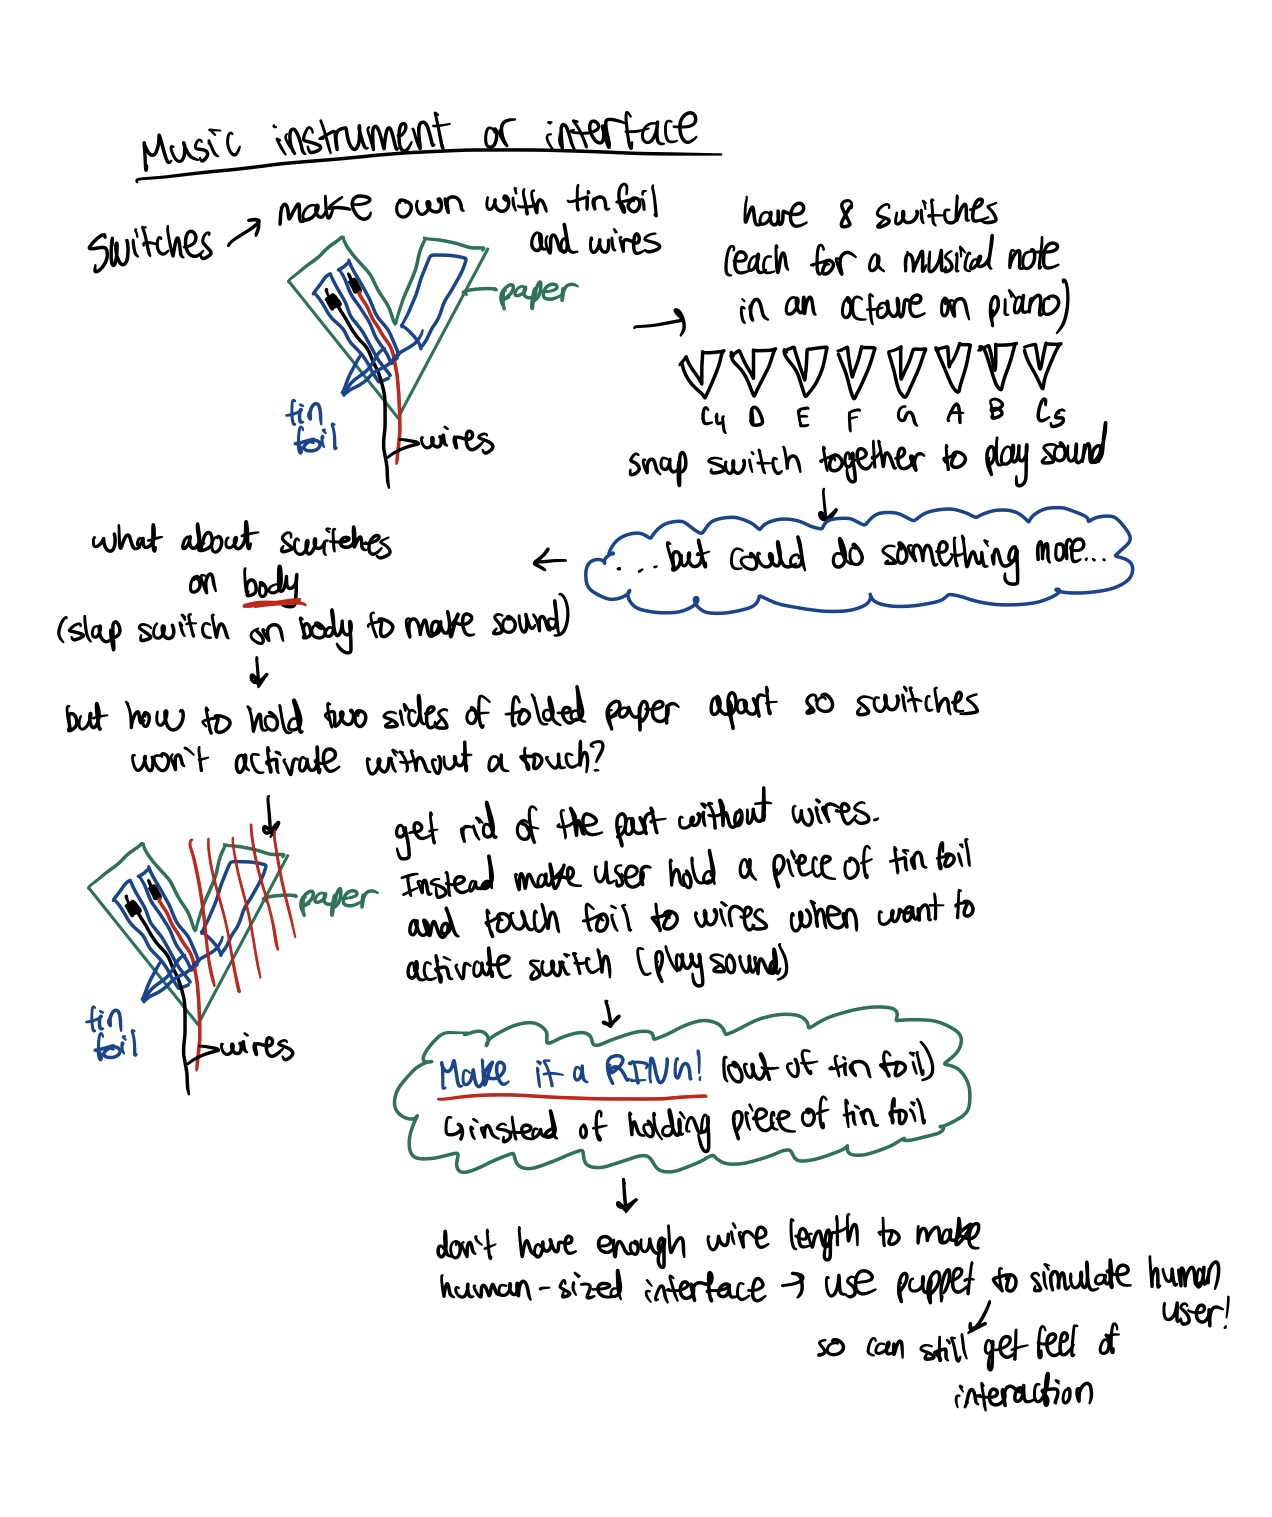 Music instrument or interface
switches → make own with tin foil
and wires
paper
tin
foil
wires
→
have 8 switches
(each for a musical note
in an octave on piano)
C4 D E F G A B C5
snap switch together to play sound
...but could do something more...
what about switches
on body
(slap switch on body to make sound)
but how to hold two sides of folded paper apart so switches
won't activate without a touch?
paper
tin
foil
wires
get rid of the part without wires.
Instead make user hold a piece of tin foil
and touch foil to wires when want to
activate switch (play sound)
Make it a RING! (out of tin foil)
↳ instead of holding piece of tin foil
don't have enough wire length to make
human-sized interface → use puppet to simulate human
user!
so can still get feel of
interaction